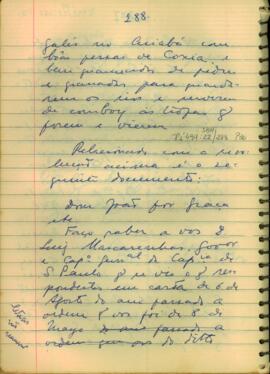 288
galés no Cuiabá com
boas pessas de Coxia e
bem guarnecidos de pedras
e granadas para guarda-
rem os rios e servirem
de comboy ás tropas q
forem e vierem
Relacionado com a
acima é o se-
guinte documento:
Dom João por Graça
etc
Faço saber a vos D
Luiz Mascarenhas, Govor
e Capm General da Capia de
S Paulo q se vio o q res-
pondestes em carta de 6 de
Agosto do ano passado a
ordem q vos foi de 8 de
Mayo do ano passado a
ordem que vos do ditto